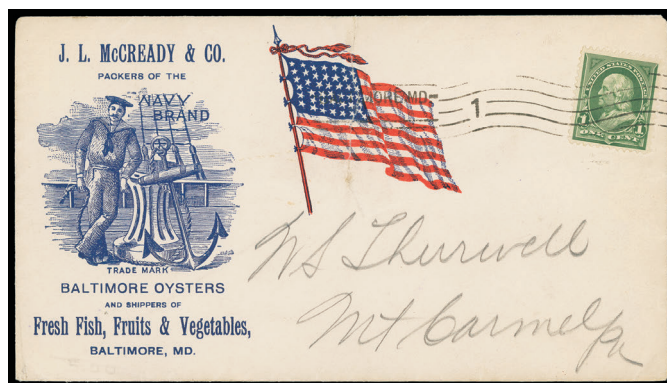 J. L. McCREADY & CO.
PACKERS OF THE
NAVY
BRAND
TRADE MARK
BALTIMORE OYSTERS
AND SHIPPERS OF
Fresh Fish, Fruits & Vegetables,
BALTIMORE, MD.
MD.
1
1 1
ONE CENT
W S Thurwell
Mt Carmel
Pa